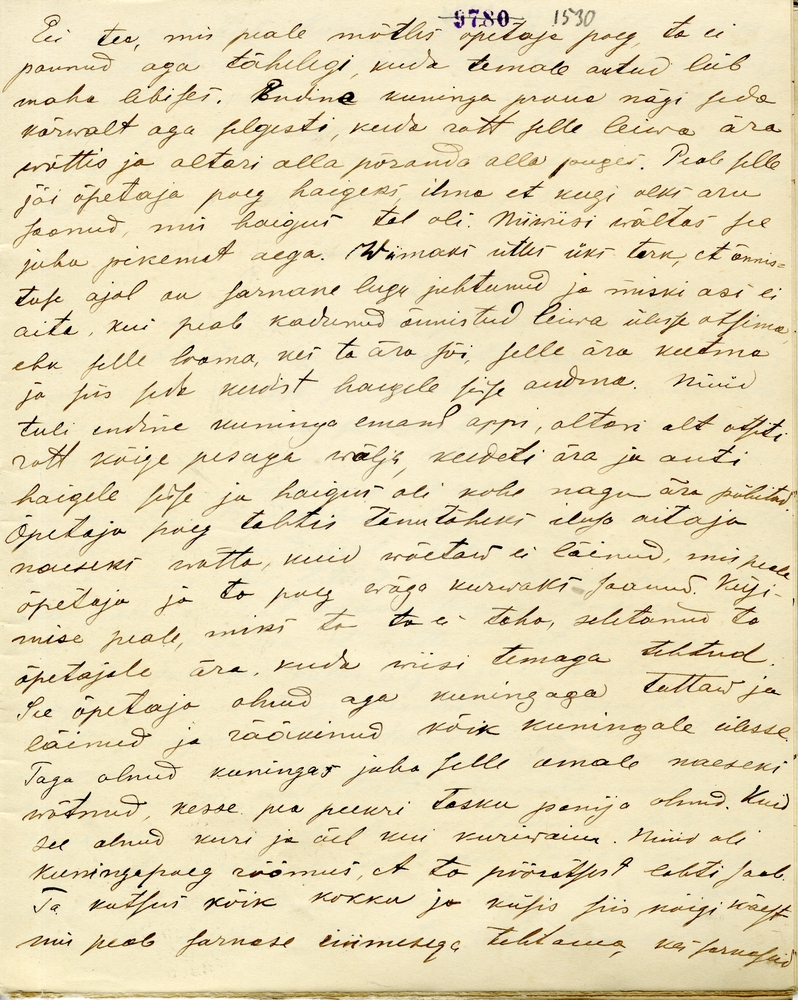 9780 1530
Ei tea, mis peale mõtles õpetaja poeg, ta ei
pannud aga tähelegi, kuda temale antud leib
maha libises. Endine kuninga proua nägi seda
kõrwalt aga selgesti, kuda rott selle leiwa ära
wõttis ja altari alla põranda alla puges. Peale selle
jäi õpetaja poeg haigeks, ilma et keegi oleks aru
saanud, mis haigus tal oli. Niiwiisi wältas see
juba pikemat aega. Wiimaks ütles üks tark, et õnnis=
tuse ajal on sarnane lugu juhtunud ja miski asi ei
aita, kui peab kadunud õnnistud leiwa ülesse otsima,
ehk selle looma, kes ta ära sõi, selle ära keetma
ja siis seda keedist haigele sisse andma. Nüüd
tuli endine kuninga emand appi, altari alt otsiti
rott kõige pesaga wälja, keedeti ära ja anti
haigele sisse ja haigus oli kohe nagu ära pühitud.
Õpetaja poeg tahtis tänutäheks ilusa aitaja
naeseks wõtta, kuid wõetaw ei läinud, mis peale
õpetaja ja ta poeg wäga kurwaks saanud. Küsi-
mise peale, miks ta ta ei taha, seletanud ta
õpetajale ära, kuda wiisi temaga tehtud.
See õpetaja olnud aga kuningaga tuttaw ja
läinud ja rääkinud kõik kuningale ülesse.
Taga olnud kuningas juba selle omale naeseks
wõtnud, kesse pea peekri tasku panija olnud. Kuid
see olnud kuri ja äel kui kuriwaim. Nüüd oli
kuningapoeg rõõmus, et ta pöörasest lahti saab.
Ta kutsus kõik kokku ja küsis siis kõigi käest
mis peab sarnase inimesega tehtama, kes sarnasid